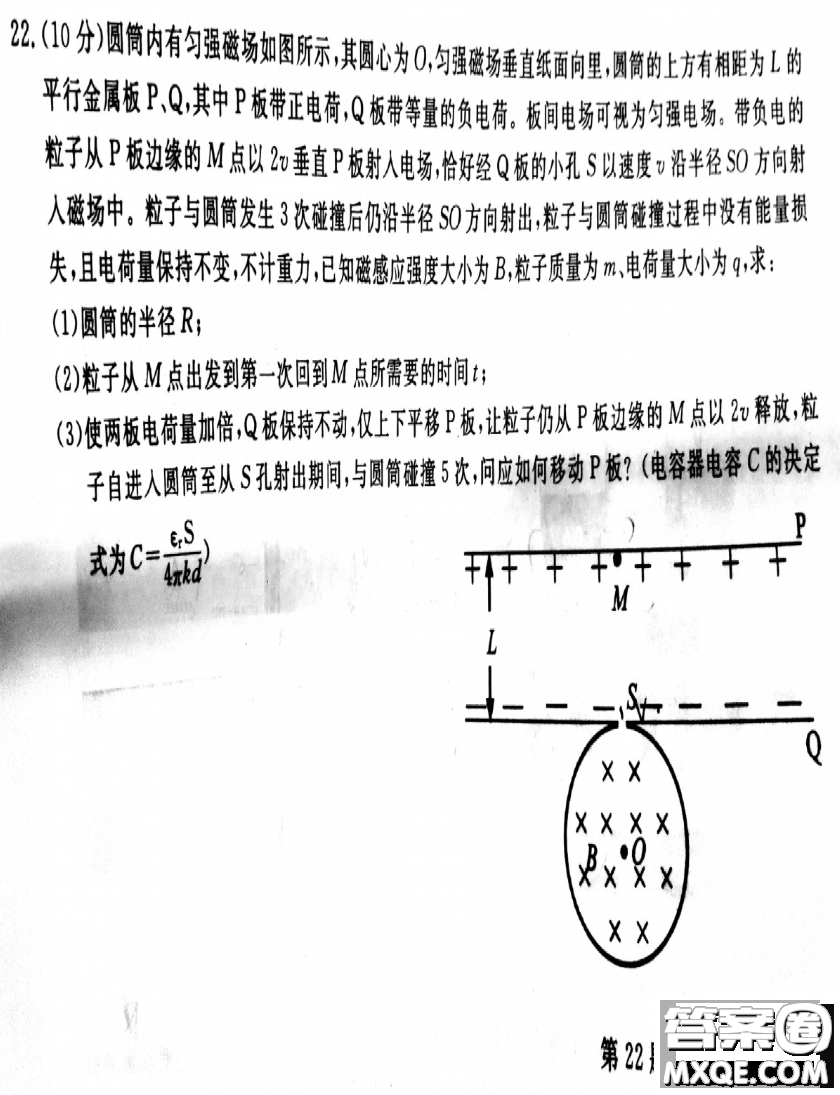 22.(10分)圆筒内有匀强磁场如图所示,其圆心为O,匀强磁场垂直纸面向里,圆筒的上方有相距为L的
平行金属板P、Q,其中P板带正电荷,Q板带等量的负电荷。板间电场可视为匀强电场。带负电的
粒子从P板边缘的M点以2v垂直P板射入电场,恰好经Q板的小孔S以速度v沿半径SO方向射
入磁场中。粒子与圆筒发生3次碰撞后仍沿半径SO方向射出,粒子与圆筒碰撞过程中没有能量损
失,且电荷量保持不变,不计重力,已知磁感应强度大小为B,粒子质量为m、电荷量大小为q,求:
(1)圆筒的半径R;
(2)粒子从M点出发到第一次回到M点所需要的时间t;
(3)使两板电荷量加倍,Q板保持不动,仅上下平移P板,让粒子仍从P板边缘的M点以2v释放,粒
子自进入圆筒至从S孔射出期间,与圆筒碰撞5次,问应如何移动P板?(电容器电容C的决定
式为C=εᵣS/4πkd)
P
+ + + + + + + +
M
L
S
Q
× ×
× × × ×
B O
× × × ×
× ×
第22
答案圈
MXQE.COM